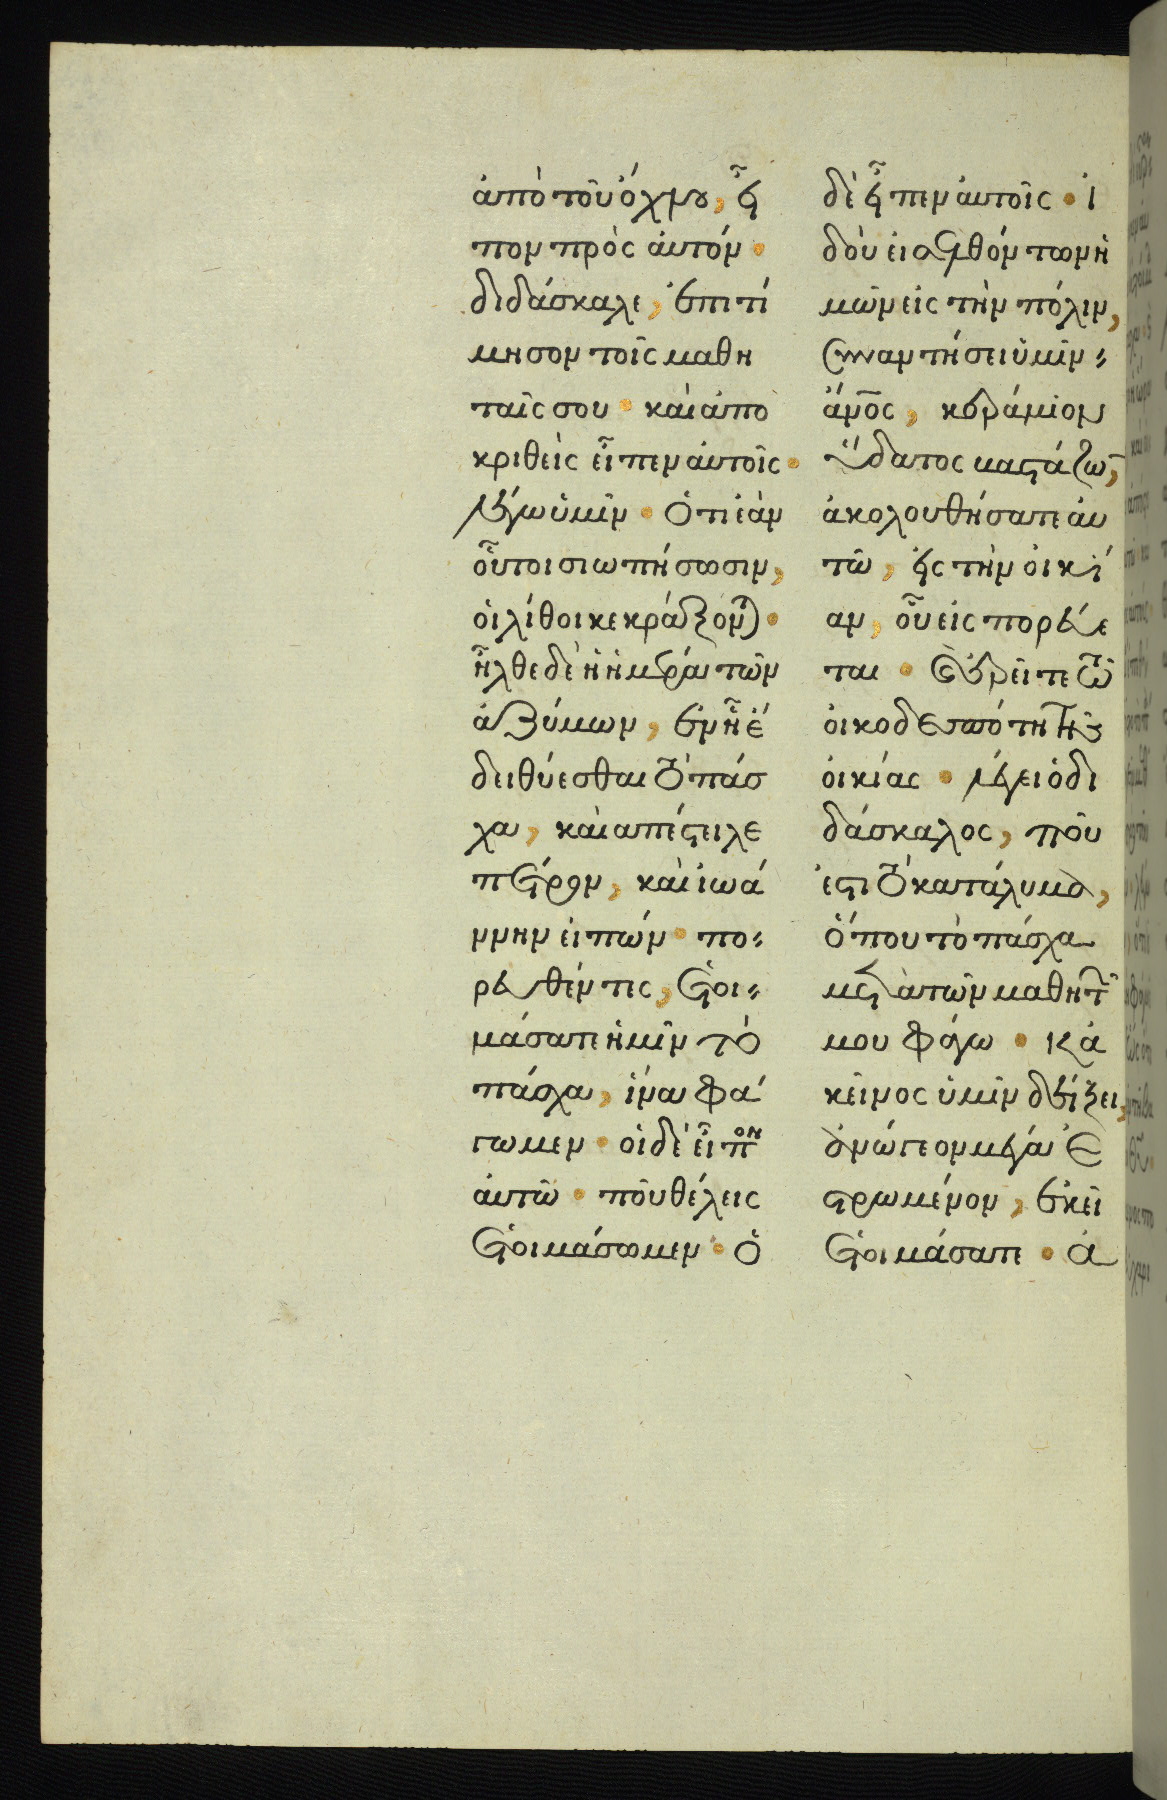 ἀπὸ τοῦ ὄχλου, εἶ
πον πρὸς αὐτόν·
διδάσκαλε, ἐπιτί
μησον τοῖς μαθη
ταῖς σου· καὶ ἀπο
κριθεὶς εἶπεν αὐτοῖς·
λέγω ὑμῖν· ὅτι ἐὰν
οὗτοι σιωπήσωσιν,
οἱ λίθοι κεκράξονται·
ἦλθε δὲ ἡ ἡμέρα τῶν
ἀζύμων, ἐν ᾗ ἔ
δει θύεσθαι τὸ πάσ
χα, καὶ ἀπέστειλε
πέτρον, καὶ ἰωά
ννην εἰπών· πο-
ρευθέντες, ἑτοι-
μάσατε ἡμῖν τὸ
πάσχα, ἵνα φά
γωμεν· οἱ δὲ εἶπον
αὐτῶ· ποῦ θέλεις
ἑτοιμάσωμεν· ὁ
δὲ εἶπεν αὐτοῖς· ἰ
δοὺ εἰσελθόντων ἡ
μῶν εἰς τὴν πόλιν,
συναντήσει ὑμῖν-
ἄνος, κεράμιον
ὕδατος βαστάζων,
ἀκολουθήσατε αὐ
τῶ, εἰς τὴν οἰκί
αν, οὗ εἰσπορεύε
ται· ἐρεῖτε τῶ
οἰκοδεσπότη τῆς
οἰκίας· λέγει ὁ δι
δάσκαλος, ποῦ
ἐστι τὸ κατάλυμα,
ὅπου τὸ πάσχα
μετὰ τῶν μαθητῶν
μου φάγω· κἀ
κεῖνος ὑμῖν δείξει,
ἀνώγεον μέγα ἐ
στρωμένον, ἐκεῖ
ἑτοιμάσατε· ἀ